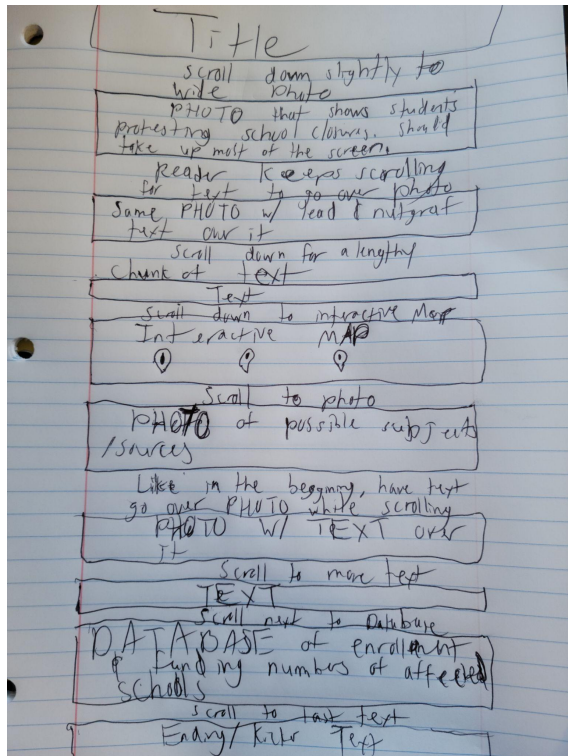 Title
scroll down slightly to
wide photo
PHOTO that shows students
protesting school closures. should
take up most of the screen.
Reader keeps scrolling
for text to go over photo
Same PHOTO w/ lead & nutgraf
text over it
Scroll down for a lengthy
chunk of text
Text
Scroll down to interactive Map
Interactive MAP
Scroll to photo
PHOTO of possible subjects
/sources
Like in the beginning, have text
go over PHOTO while scrolling
PHOTO w/ TEXT over
it
Scroll to more text
TEXT
Scroll next to Database
DATABASE of enrollment
& funding numbers of affected
schools
scroll to last text
Ending/ Kicker Text